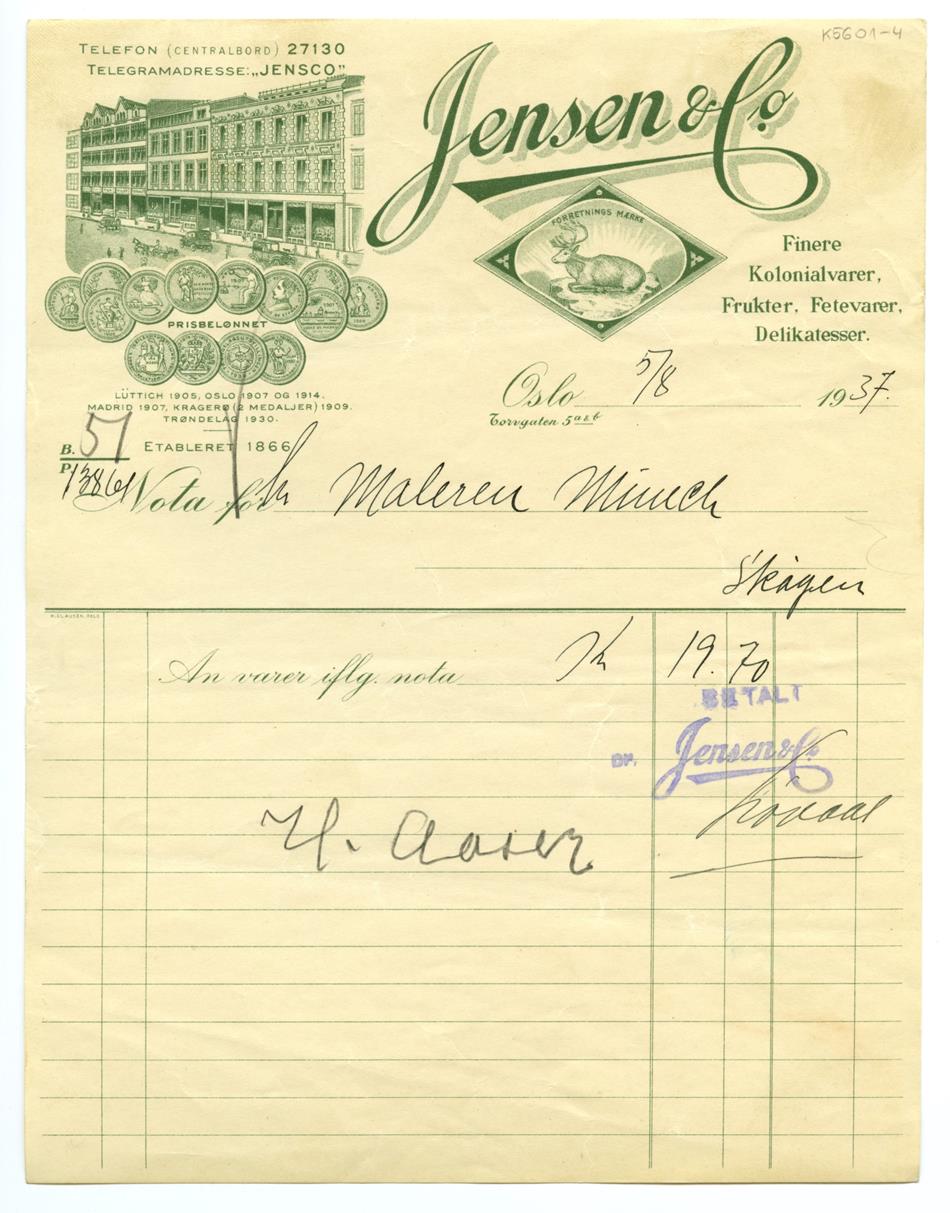 K5601-4
TELEFON (CENTRALBORD) 27130
TELEGRAMADRESSE: „JENSCO"
Jensen & Co.
FORRETNINGS MÆRKE
Finere
Kolonialvarer,
Frukter, Fetevarer,
Delikatesser.
PRISBELØNNET
LÜTTICH 1905, OSLO 1907 OG 1914.
MADRID 1907, KRAGERØ (2 MEDALJER) 1909.
TRØNDELAG 1930.
ETABLERET 1866
Oslo 5/8 1937.
Torvgaten 5 a & b
B. 51
P.
Nota for Hr Maleren Münch
Skøyen
An varer iflg. nota Kr 19.70
BETALT
Jensen & Co.